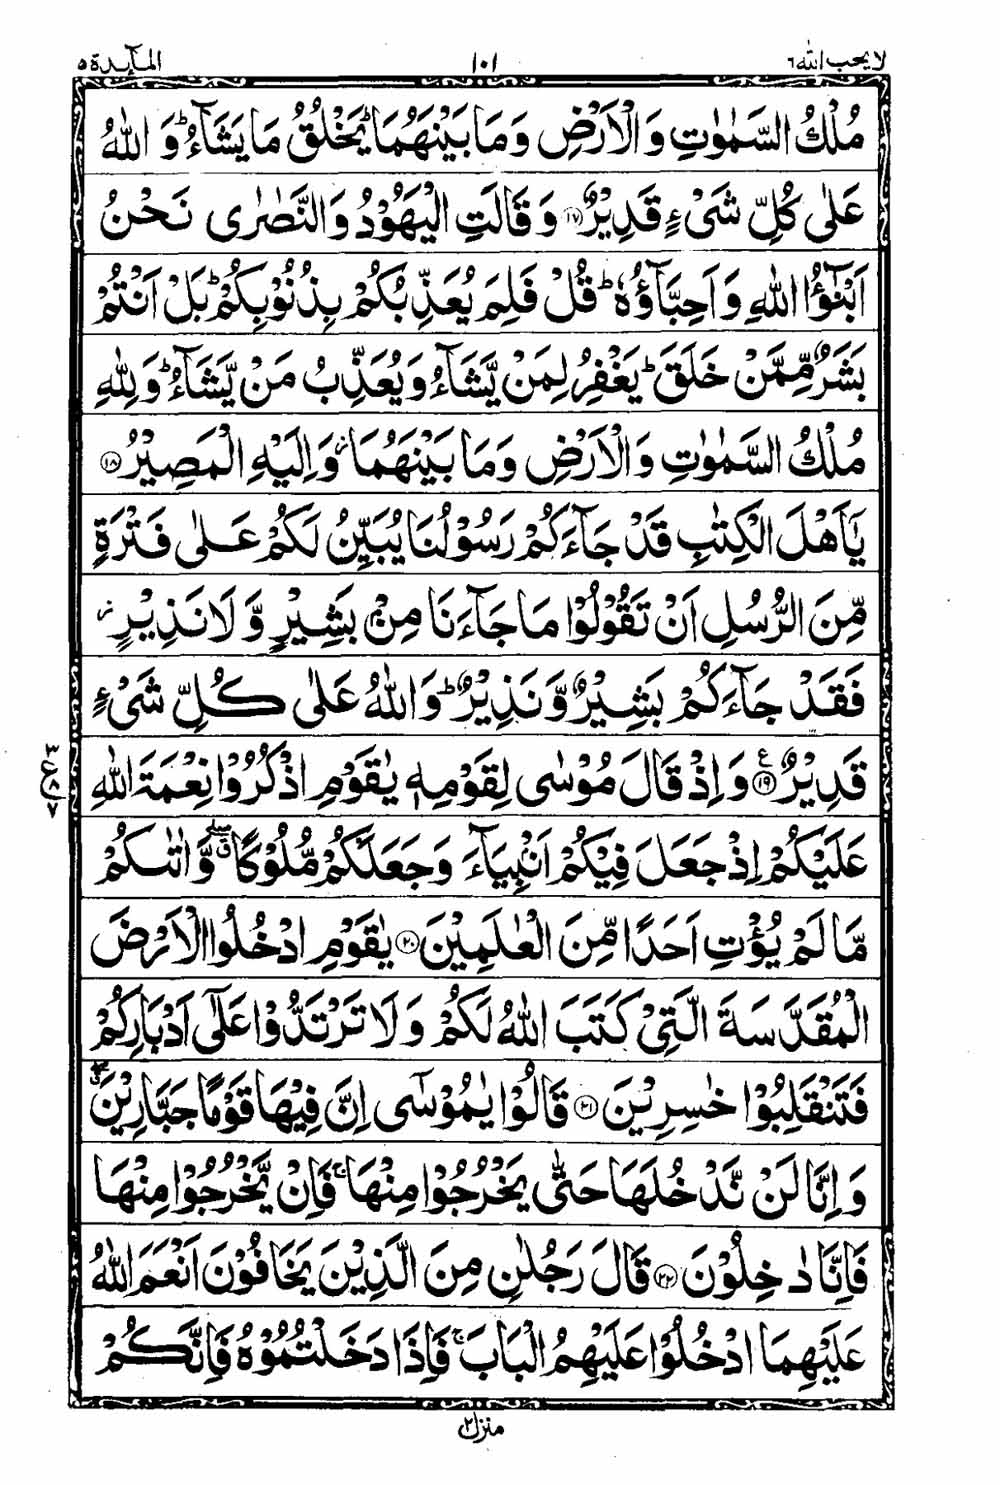 لا يحب الله ٦ ١٠١ المآئدة ٥
مُلْكُ السَّمٰوٰتِ وَالْاَرْضِ وَمَا بَيْنَهُمَا ؕ يَخْلُقُ مَا يَشَآءُ ؕ وَاللّٰهُ
عَلٰى كُلِّ شَیْءٍ قَدِيْرٌ ﴿۱۷﴾ وَقَالَتِ الْيَهُوْدُ وَالنَّصٰرٰى نَحْنُ
اَبْنٰٓؤُا اللّٰهِ وَاَحِبَّآؤُهٗ ؕ قُلْ فَلِمَ يُعَذِّبُكُمْ بِذُنُوْبِكُمْ ؕ بَلْ اَنْتُمْ
بَشَرٌ مِّمَّنْ خَلَقَ ؕ يَغْفِرُ لِمَنْ يَّشَآءُ وَيُعَذِّبُ مَنْ يَّشَآءُ ؕ وَلِلّٰهِ
مُلْكُ السَّمٰوٰتِ وَالْاَرْضِ وَمَا بَيْنَهُمَا ؗ وَاِلَيْهِ الْمَصِيْرُ ﴿۱۸﴾
يٰۤاَهْلَ الْكِتٰبِ قَدْ جَآءَكُمْ رَسُوْلُنَا يُبَيِّنُ لَكُمْ عَلٰى فَتْرَةٍ
مِّنَ الرُّسُلِ اَنْ تَقُوْلُوْا مَا جَآءَنَا مِنْۢ بَشِيْرٍ وَّلَا نَذِيْرٍ ؗ
فَقَدْ جَآءَكُمْ بَشِيْرٌ وَّنَذِيْرٌ ؕ وَاللّٰهُ عَلٰى كُلِّ شَیْءٍ
قَدِيْرٌ ﴿۱۹﴾ ع وَاِذْ قَالَ مُوْسٰى لِقَوْمِهٖ يٰقَوْمِ اذْكُرُوْا نِعْمَةَ اللّٰهِ
٣ ع ٨ ٧
عَلَيْكُمْ اِذْ جَعَلَ فِيْكُمْ اَنْۢبِيَآءَ وَجَعَلَكُمْ مُّلُوْكًا ۖۗ وَّاٰتٰىكُمْ
مَّا لَمْ يُؤْتِ اَحَدًا مِّنَ الْعٰلَمِيْنَ ﴿۲۰﴾ يٰقَوْمِ ادْخُلُوا الْاَرْضَ
الْمُقَدَّسَةَ الَّتِیْ كَتَبَ اللّٰهُ لَكُمْ وَلَا تَرْتَدُّوْا عَلٰۤى اَدْبَارِكُمْ
فَتَنْقَلِبُوْا خٰسِرِيْنَ ﴿۲۱﴾ قَالُوْا يٰمُوْسٰۤى اِنَّ فِيْهَا قَوْمًا جَبَّارِيْنَ ۖۗ
وَاِنَّا لَنْ نَّدْخُلَهَا حَتّٰى يَخْرُجُوْا مِنْهَا ۚ فَاِنْ يَّخْرُجُوْا مِنْهَا
فَاِنَّا دٰخِلُوْنَ ﴿۲۲﴾ قَالَ رَجُلٰنِ مِنَ الَّذِيْنَ يَخَافُوْنَ اَنْعَمَ اللّٰهُ
عَلَيْهِمَا ادْخُلُوْا عَلَيْهِمُ الْبَابَ ۚ فَاِذَا دَخَلْتُمُوْهُ فَاِنَّكُمْ
منزل ٢